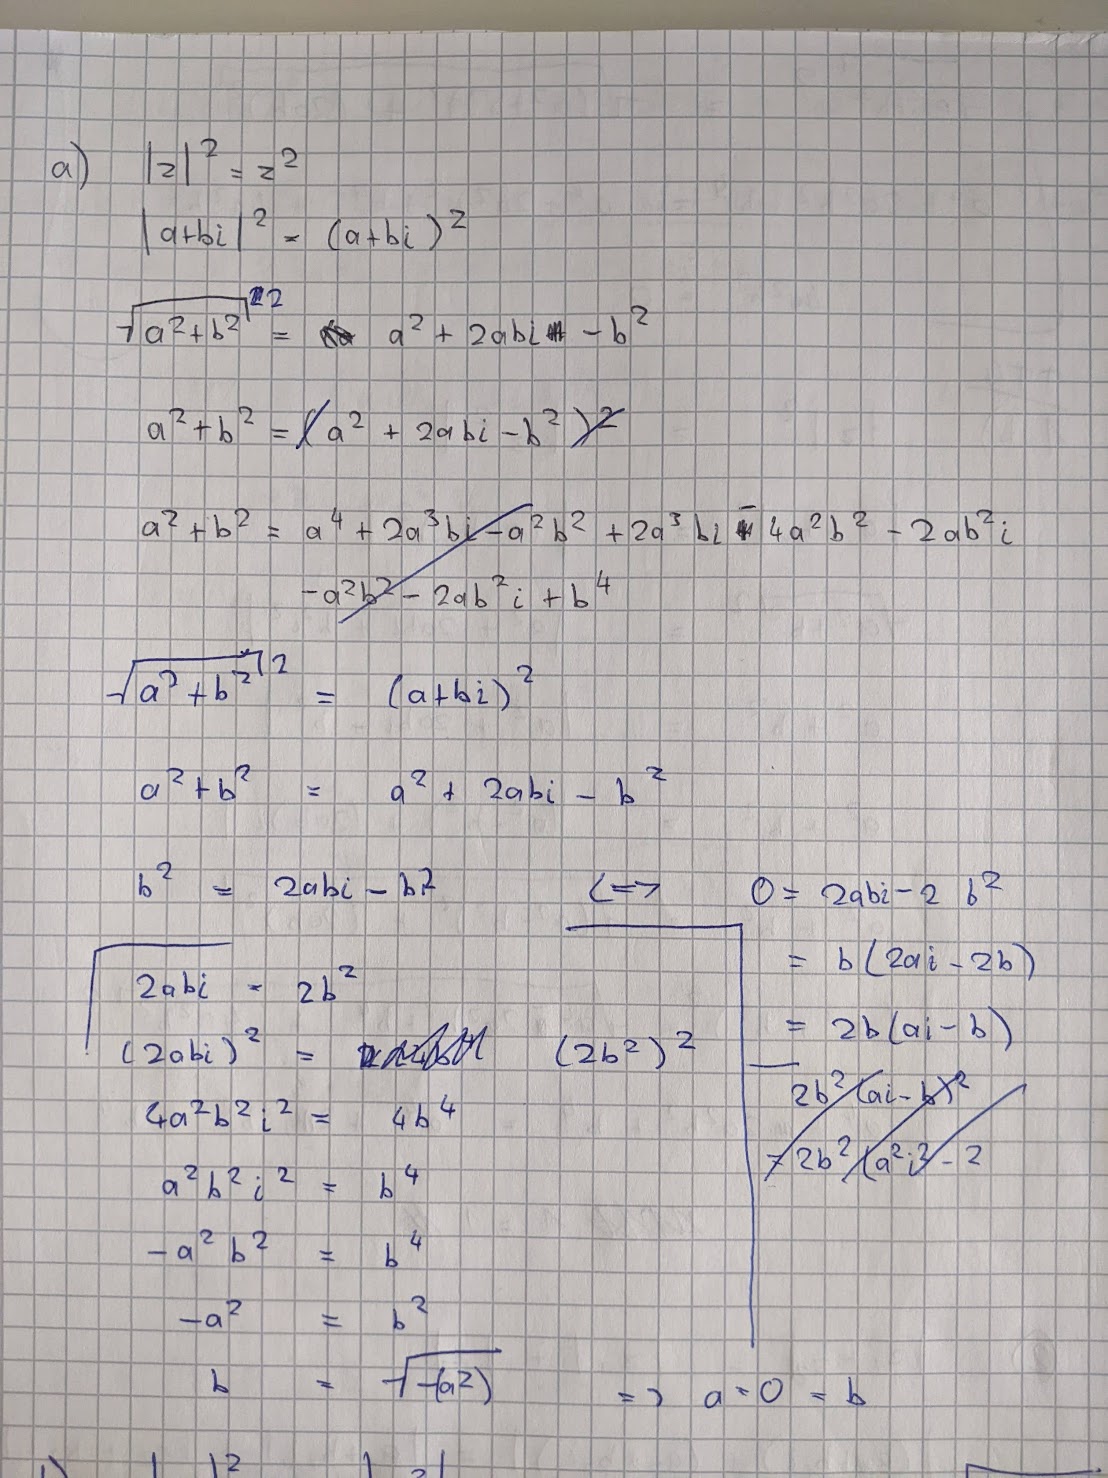 a) |z|² = z²
|a+bi|² = (a+bi)²
√(a²+b²)² = a² + 2abi - b²
a²+b² = (a² + 2abi - b²)²
a²+b² = a⁴ + 2a³bi - a²b² + 2a³bi - 4a²b² - 2ab²i
-a²b² - 2ab²i + b⁴
√(a²+b²)² = (a+bi)²
a²+b² = a² + 2abi - b²
b² = 2abi - b² <=> 0 = 2abi - 2 b²
= b(2ai - 2b)
2abi = 2b²
= 2b(ai - b)
(2abi)² = (2b²)²
2b²(ai - b)²
4a²b²i² = 4b⁴
= 2b²(a²i² - 2
a²b²i² = b⁴
-a²b² = b⁴
-a² = b²
b = √-(a²) => a = 0 = b